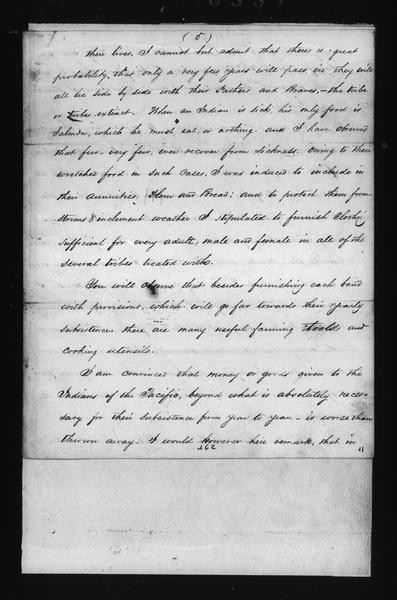 (5)
their lives, I cannot but admit that there is great
probability, that only a very few years will pass, ere they will
all lie side by side with their Fathers and Braves,- the tribe
or tribes extinct. When an Indian is sick, his only food is
Salmon, which he must eat, or nothing. and I have observed
that few - very few, ever recover from sickness. Owing to their
wretched food in such cases, I was induced to include in
their annuities, Flour and Bread; and to protect them from
storms & inclement weather I stipulated to furnish Clothing
sufficient for every adult, male and female in all of the
several tribes treated with.
You will observe that besides furnishing each band
with provisions, which will go far towards their yearly
subsistence, there are many useful farming and
cooking utensils.
I am convinced that money or goods given to the
Indians of the Pacific, beyond what is absolutely neces-
sary for their subsistence from year to year, - is worse than
thrown away. I would however here remark, that in
162
11